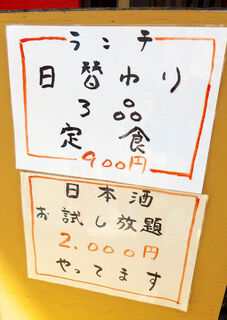 ランチ
日替わり
3品
定食
900円
日本酒
お試し放題
2.000円
やってます